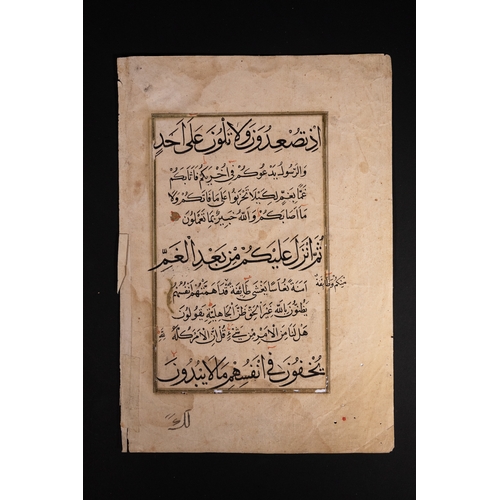 اِذْ تُصْعِدُونَ وَلَا تَلْوُنَ عَلٰى اَحَدٍ
وَالرَّسُولُ يَدْعُوكُمْ فِى اُخْرٰيكُمْ فَاَثَابَكُمْ
غَمًّا بِغَمٍّ لِكَيْلَا تَحْزَنُوا عَلٰى مَا فَاتَكُمْ وَلَا
مَا اَصَابَكُمْ وَاللّٰهُ خَبِيرٌ بِمَا تَعْمَلُونَ
ثُمَّ اَنْزَلَ عَلَيْكُمْ مِنْ بَعْدِ الْغَمِّ
اَمَنَةً نُعَاسًا يَغْشٰى طَائِفَةً قَدْ اَهَمَّتْهُمْ اَنْفُسُهُمْ
مِنْكُمْ وَطَائِفَةٌ
يَظُنُّونَ بِاللّٰهِ غَيْرَ الْحَقِّ ظَنَّ الْجَاهِلِيَّةِ يَقُولُونَ
هَلْ لَنَا مِنَ الْاَمْرِ مِنْ شَىْءٍ قُلْ اِنَّ الْاَمْرَ كُلَّهُ
يُخْفُونَ فِى اَنْفُسِهِمْ مَا لَا يُبْدُونَ